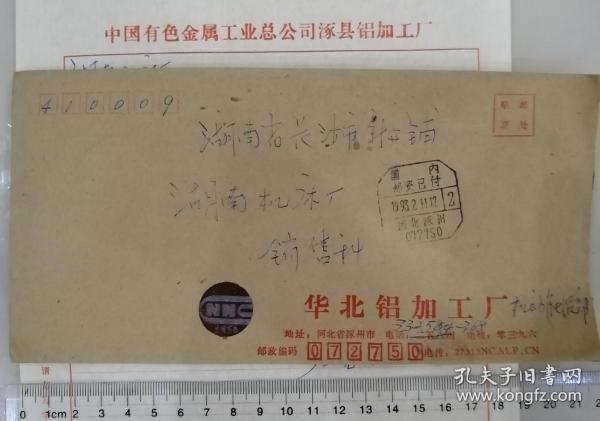 中国有色金属工业总公司涿县铝加工厂
410009
贴邮
票处
湖南省长沙市新开铺
湖南机床厂
销售科
国内
邮资已付
1993.2.11.12
2
河北涿州
072750
NNC
华北铝加工厂
地址：河北省涿州市 电话： 电报：零三九六
邮政编码 072750 电传：27313NCALP.CN
孔夫子旧书网
0 1cm 2 3 4 5 6 7 8 9 10 11 12 13 14 15 16 17 18 19 20 21